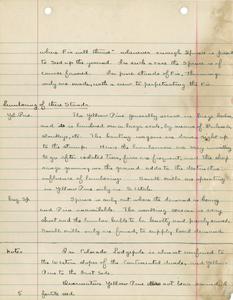 where Fir will thrive whenever enough Spruce is fired
to seed up the ground. In such a case the Spruce is of
course favored. In pure stands of Fir, Thinnings
only are made, with a view to perpetuating the Fir.
Lumbering of these Stands.
Yel. Pine. The Yellow Pine generally occurs in large bodies
and is lumbered on a large scale, by means of Railroads,
donkeys, etc. The hauling wagons are driven right up
to the stump. Hence the lumbermen are very wasteful
to go after isolated trees, fires are frequent, and the sheep
range grazing on the ground adds to the destructive
influence of lumbering. Small mills are operating
in Yellow Pine only in
Eng. Sp. Spruce is only cut where the demand is heavy
and Pine unavailable. The working season is very
short and the lumber holds to be locally and poorly sawed.
Small mills only are found, to supply local demand
Notes In Colorado Lodgepole is almost confined to
the Western slopes of the Continental divide, and Yellow
Pine to the East side
Yellow Pine does not bear
fertile seed
5